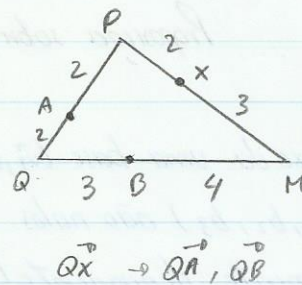 P
2
2
A
X
2
3
Q
3
B
4
M
QX → QA, QB